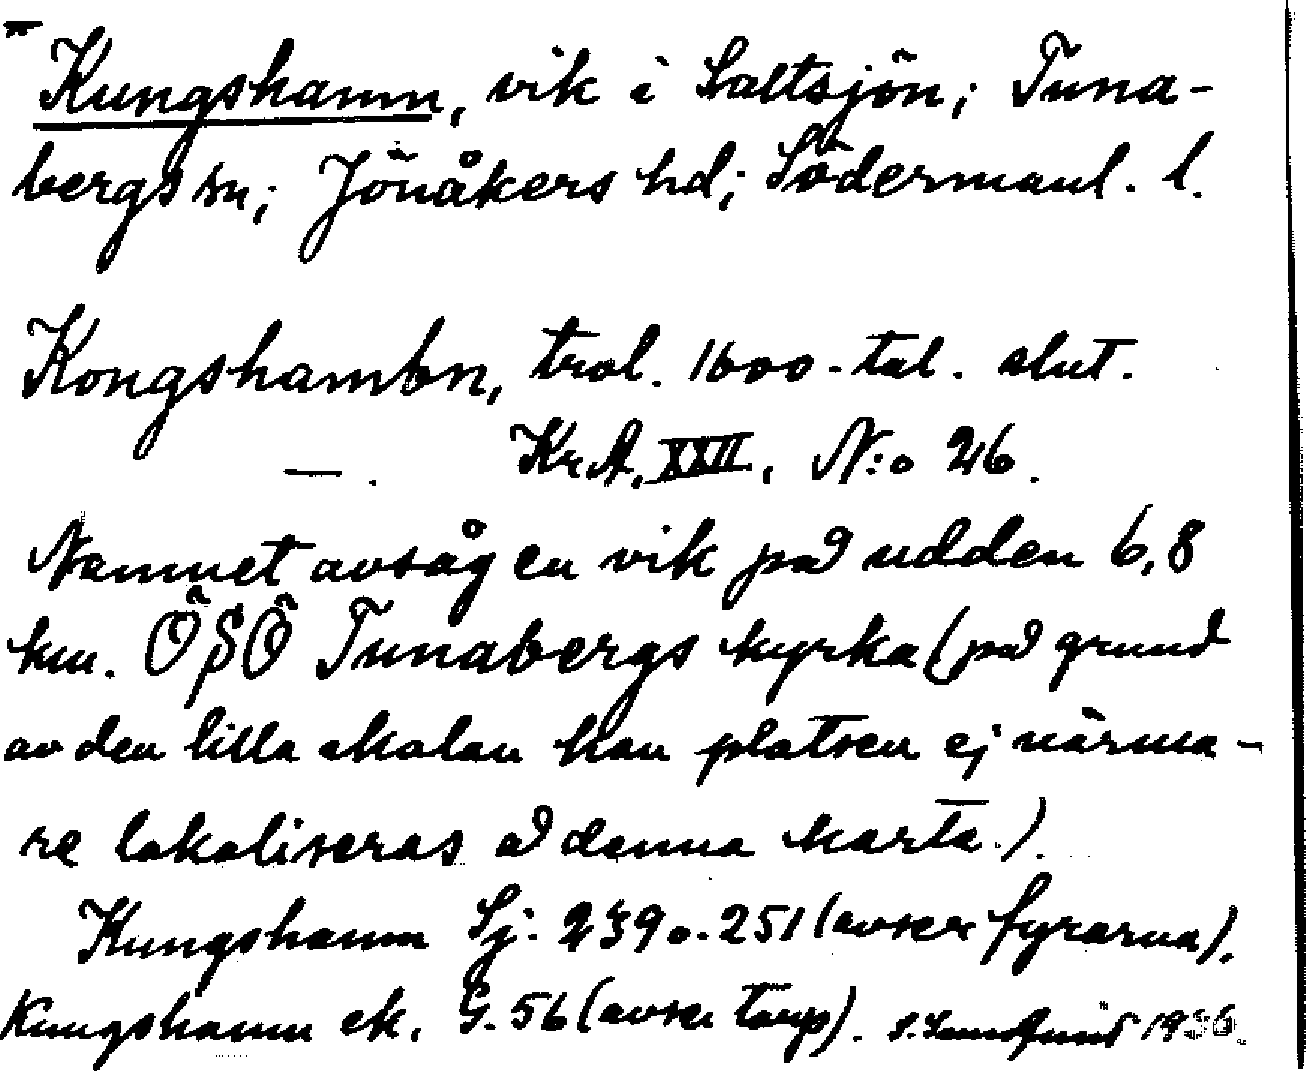 Kungshamn, vik i Saltsjön; Tuna-
bergs sn; Jönåkers hd; Södermanl. l.
Kongshambn, trol. 1600-tal. slut.
—. Kr.A. XXII, N:o 26.
Namnet avsåg en vik på udden 6,8
km. ÖSÖ Tunabergs kyrka (på grund
av den lilla skalan kan platsen ej närma-
re lokaliseras å denna karta.).
Kungshamn Sj. 239 o. 251 (avser fyrarna).
Kungshamn ek. G. 56 (avser torp). 1936.